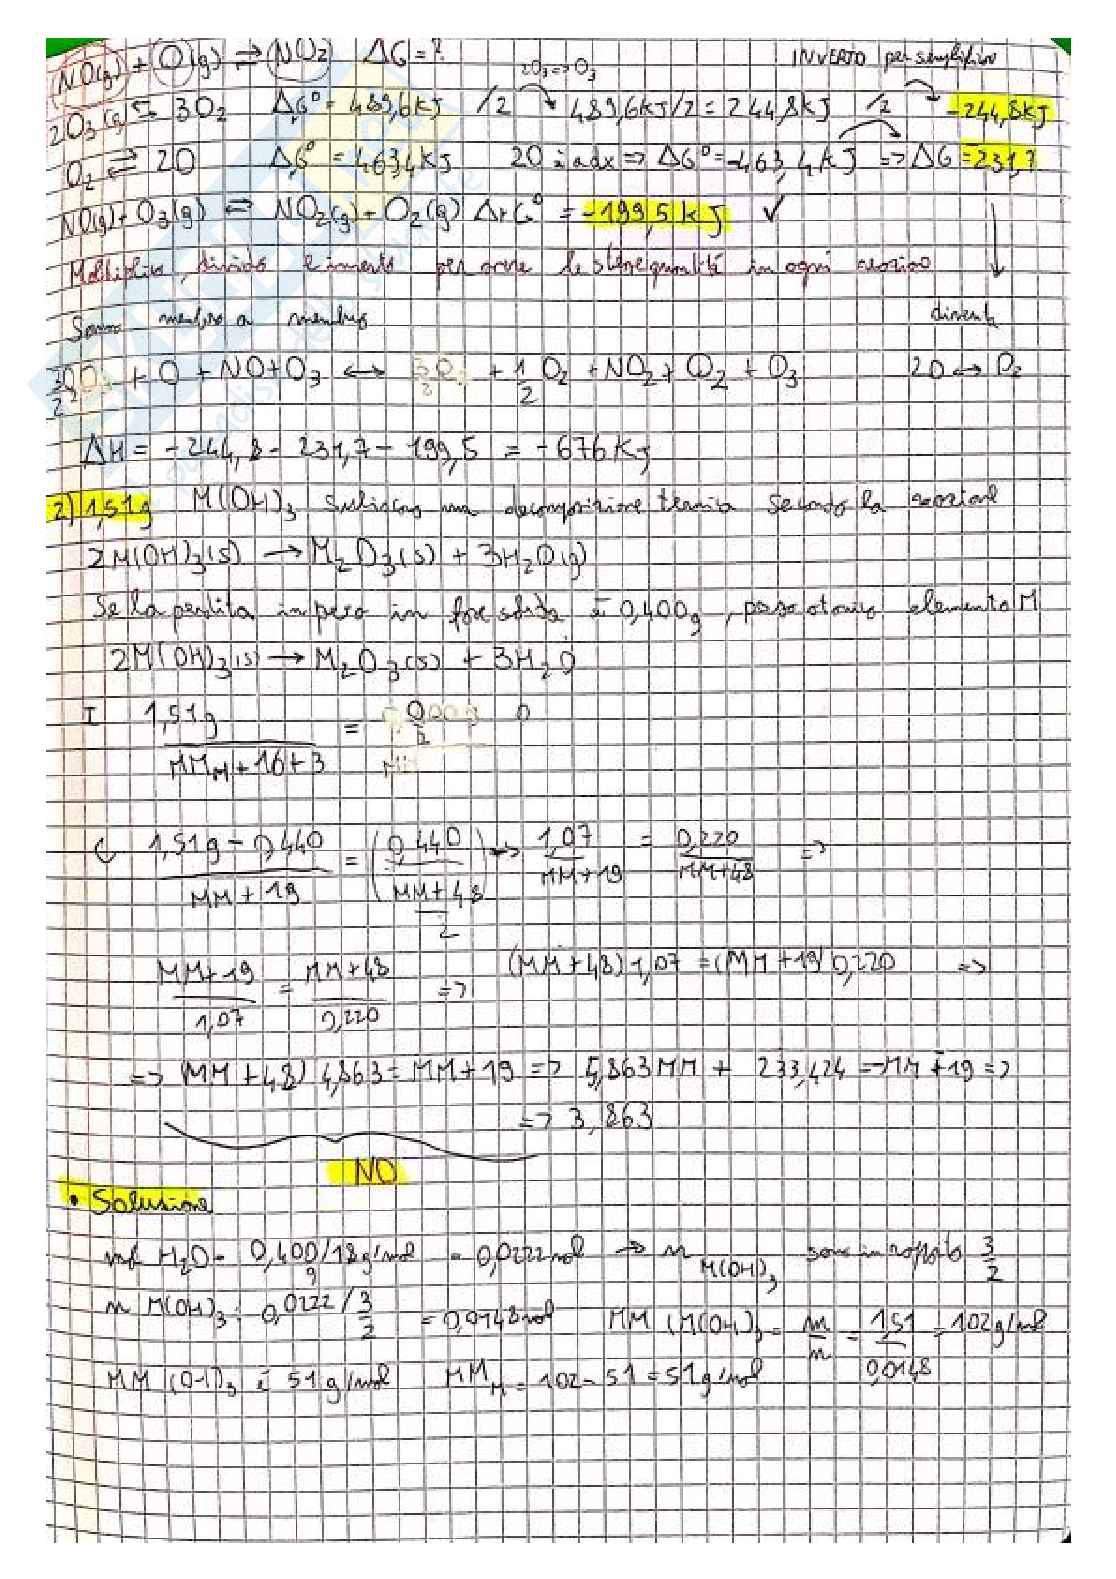 NO(g) + O(g) ⇌ NO2 ΔG = ? 2O3 => O3 INVERTO per semplificare
2O3(g) ⇆ 3O2 ΔG° = 489,6 kJ /2 489,6kJ/2 = 244,8kJ /2 -244,8kJ
O2 ⇌ 2O ΔG° = 463,4kJ 2O è a dx => ΔG° = -463,4kJ => ΔG = 231,7
NO(g) + O3(g) ⇌ NO2(g) + O2(g) ΔrG° = -199,5 kJ ✓
Moltiplico, divido e inverto per avere le stesse quantità in ogni reazione
Sommo membro a membro diventa
3/2 O2 + O + NO + O3 ↔ + 1/2 O2 + NO2 + O2 + O3 2O ↔ O2
ΔH = -244,8 - 231,7 - 199,5 = -676 KJ
2) 1,51g M(OH)3 subiscono una decomposizione termica secondo la reazione
2M(OH)3(s) → M2O3(s) + 3H2O(g)
Se la perdita in peso in fase solida è 0,400g, peso atomico elemento M
2M(OH)3(s) → M2O3(s) + 3H2O
I 1,51g / MMM + 16 + 3 =
1,51g - 0,440 / MM + 19 = (0,440 / MM + 48 / 2) → 1,07 / MM + 19 = 0,220 / MM + 48 =>
MM + 19 / 1,07 = MM + 48 / 0,220 => (MM + 48) 1,07 = (MM + 19) 0,220 =>
=> (MM + 48) 4,863 = MM + 19 => 5,863 MM + 233,424 = MM + 19 =>
=> 3,863
NO
• Soluzione
mol H2O = 0,400g/18g/mol = 0,0222mol → n M(OH)3 sono in rapporto 3/2
n M(OH)3: 0,0222 / 3/2 = 0,0148mol MM (M(OH)3) = m/n = 1,51/0,0148 = 102g/mol
MM (OH)3 è 51 g/mol MMM = 102 - 51 = 51g/mol